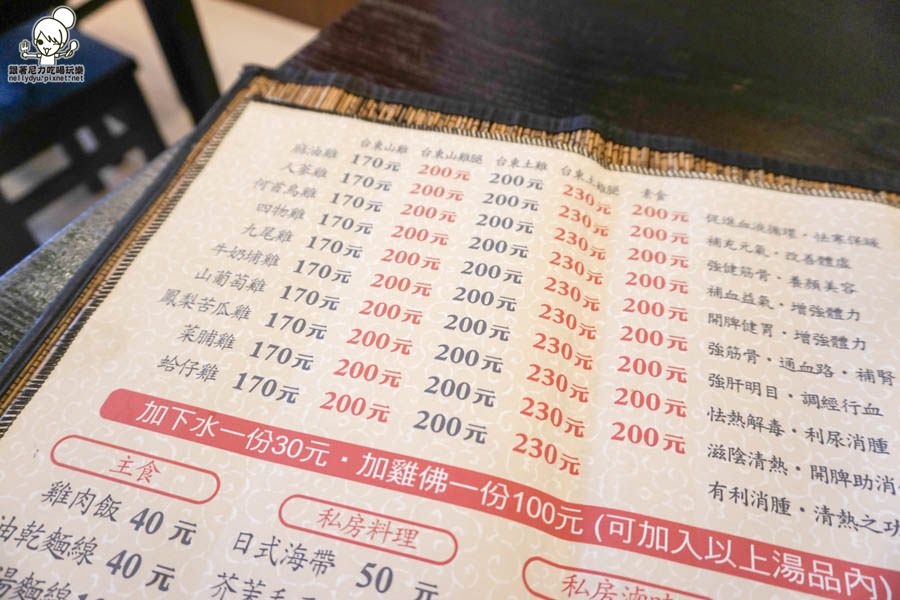 跟著尼力吃喝玩樂
nellydyu.pixnet.net
台東山雞 台東山雞腿 台東土雞 台東土雞腿 素食
麻油雞 170元 200元 200元 230元 200元 促進血液循環・祛寒保暖
人蔘雞 170元 200元 200元 230元 200元 補充元氣・改善體虛
何首烏雞 170元 200元 200元 230元 200元 強健筋骨・養顏美容
四物雞 170元 200元 200元 230元 200元 補血益氣・增強體力
九尾雞 170元 200元 200元 230元 200元 開脾健胃・增強體力
牛奶埔雞 170元 200元 200元 230元 200元 強筋骨・通血路・補腎
山葡萄雞 170元 200元 200元 230元 200元 強肝明目・調經行血
鳳梨苦瓜雞 170元 200元 200元 230元 200元 怯熱解毒・利尿消腫
菜脯雞 170元 200元 200元 230元 200元 滋陰清熱・開脾助消
蛤仔雞 170元 200元 200元 230元 有利消腫・清熱之功
加下水一份30元・加雞佛一份100元 (可加入以上湯品內)
主食
雞肉飯 40 元
油乾麵線 40 元
湯麵線
私房料理
日式海帶 50 元
芥茉
私房滷味